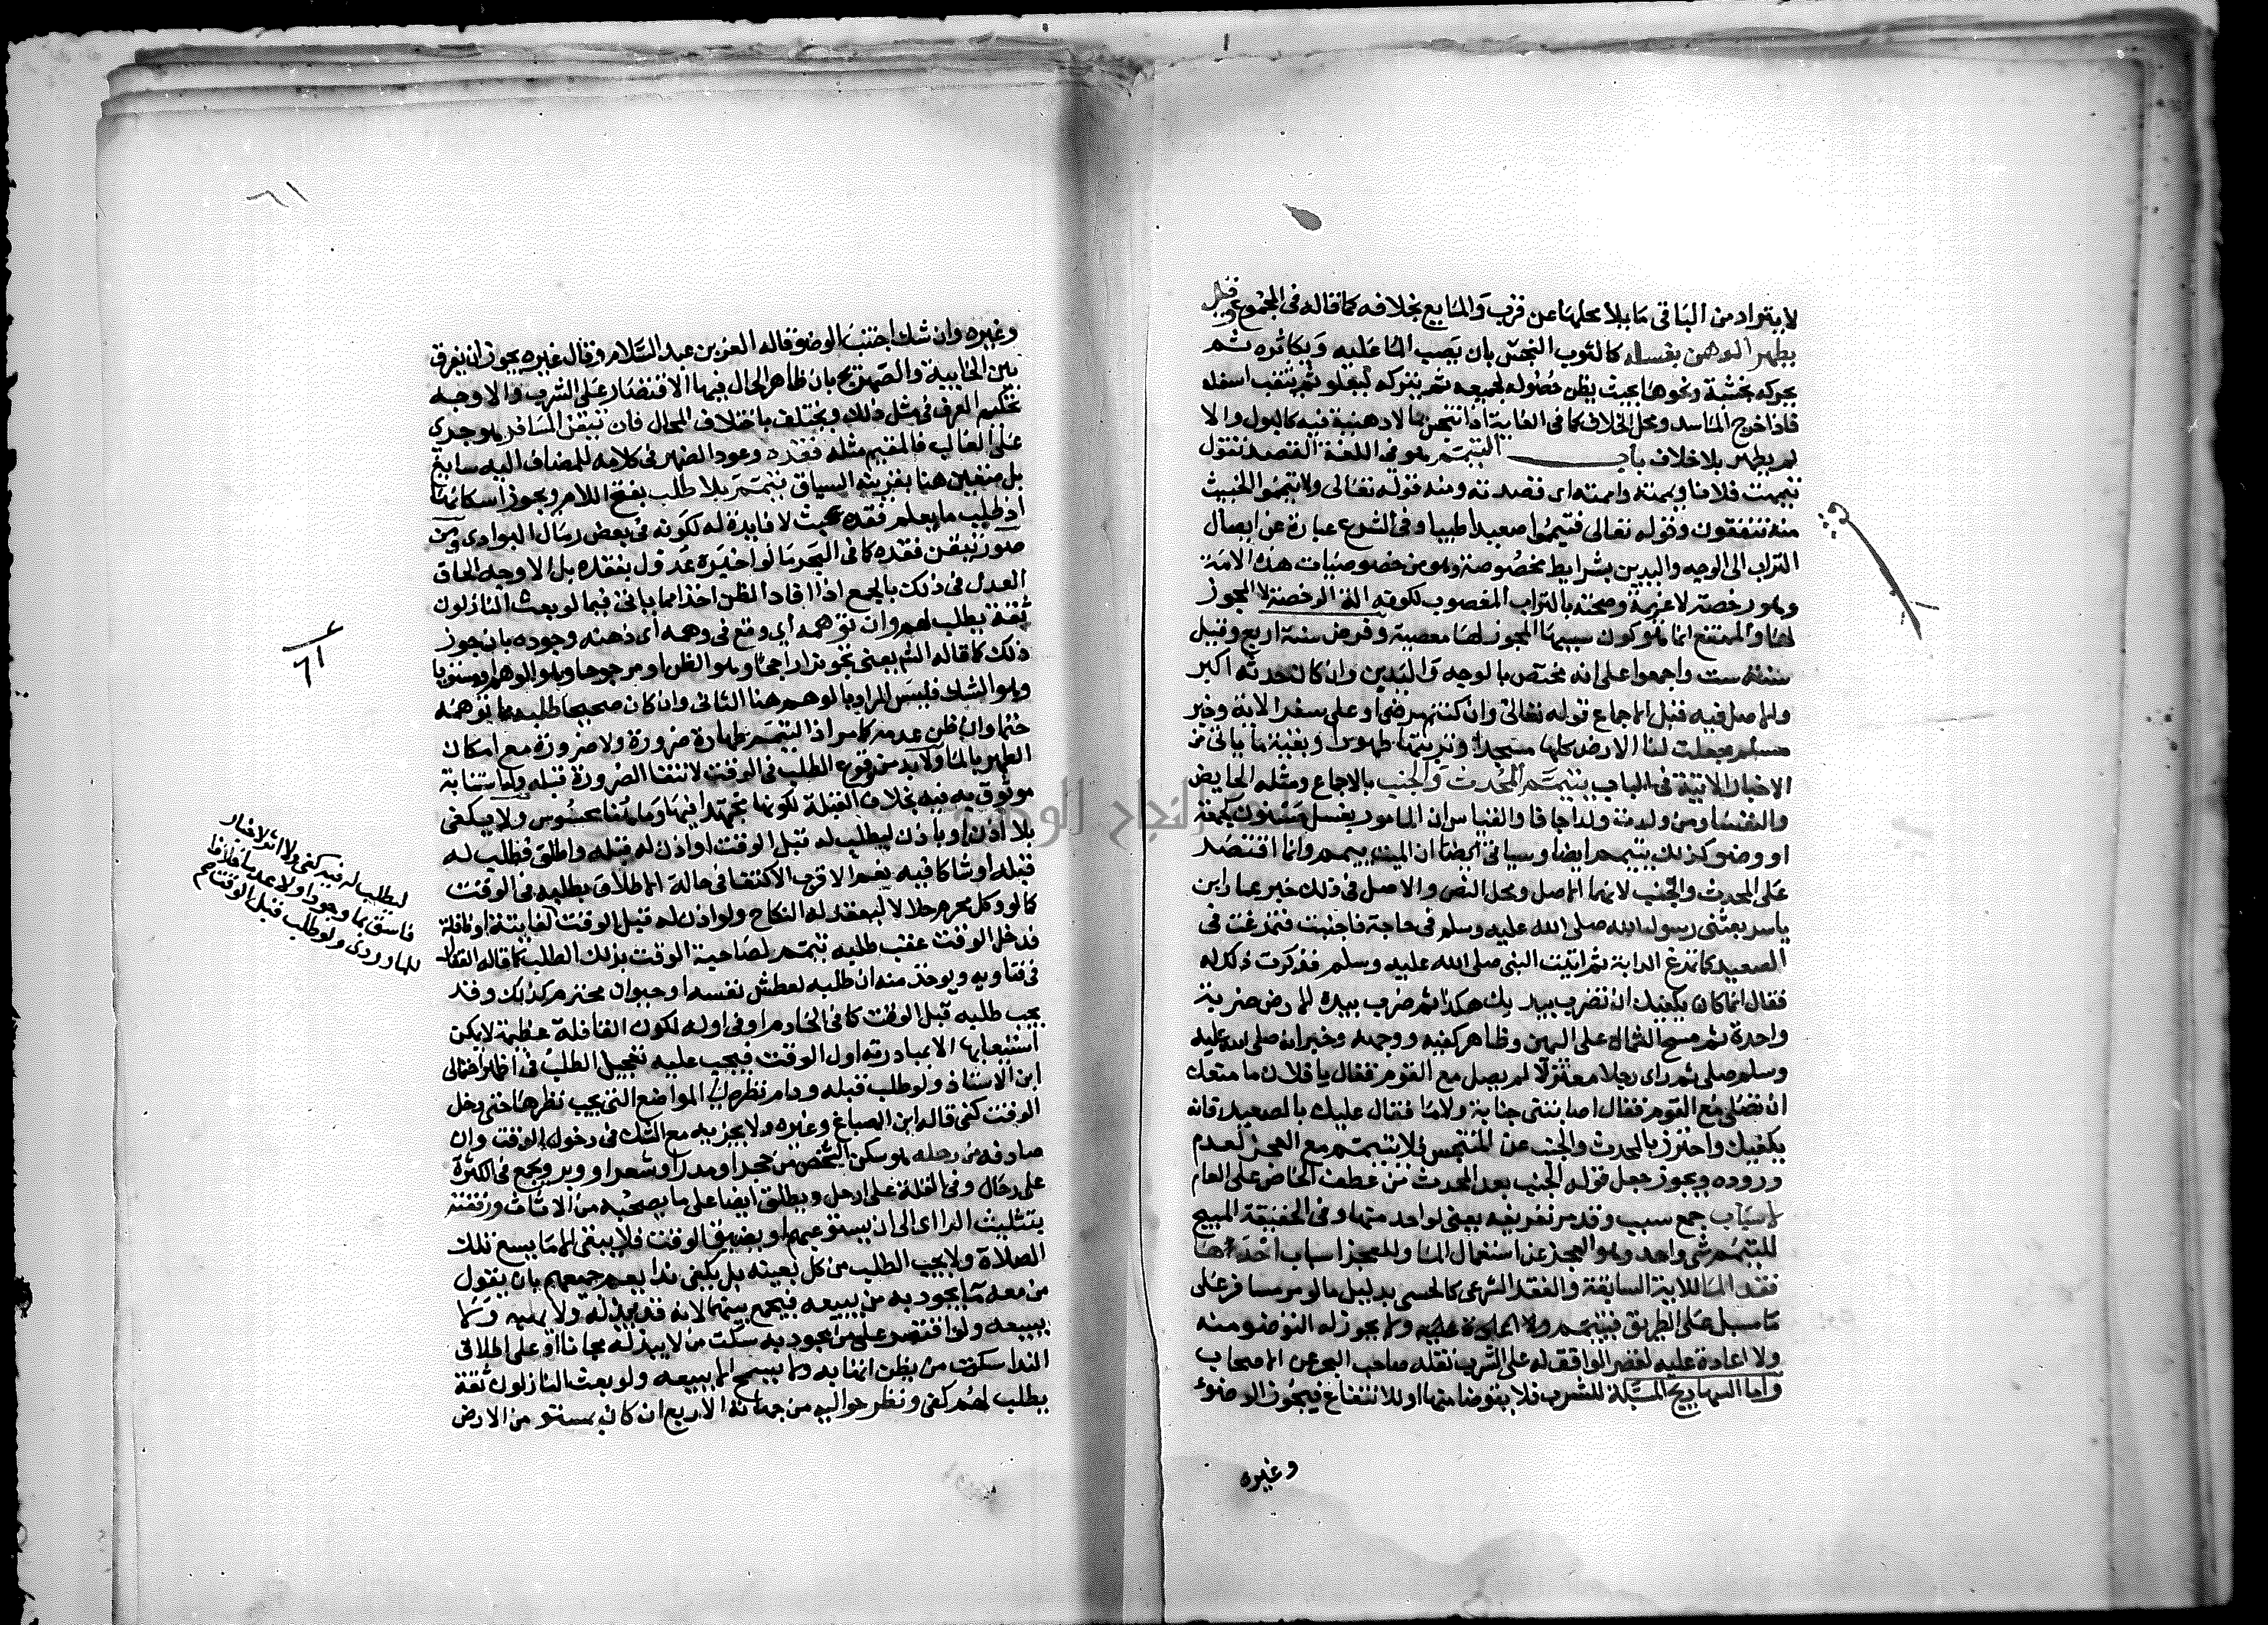 لا يتراد من الباقي ما يملأ محلها عن قرب والمايع بخلافه كما قاله في المجموع وقيل
يطهر الدهن بغسله كالثوب النجس بان يصب الماء عليه ويكاثره ثم
يحركه بخشبة ونحوها بحيث يظن وصوله لجميعه ثم يتركه ليعلو ثم يثقب اسفله
فاذا خرج الما سد ومحل الخلاف كما في الكفاية اذا تنجس بما لا دهنية فيه كالبول والا
لم يطهر بلا خلاف باب التيمم هو في اللغة القصد تقول
تيممت فلانا ويممته واممته اى قصدته ومنه قوله تعالى ولا تيمموا الخبيث
منه تنفقون وقوله تعالى فتيمموا صعيدا طيبا وفي الشرع عبارة عن ايصال
التراب الى الوجه واليدين بشرايط مخصوصة وهو من خصوصيات هذه الامة
وهو رخصة لا عزيمة وصحته بالتراب المغصوب لكونه آلة الرخصة لا المجوز
لها والممتنع انما هو كون سببها المجوز لها معصية وفرض سنة اربع وقيل
سنة ست واجمعوا على انه مختص بالوجه واليدين وان كان لحدث اكبر
والاصل فيه قبل الاجماع قوله تعالى وان كنتم مرضى او على سفر الاية وخبر
مسلم جعلت لنا الارض كلها مسجدا وتربتها طهورا وبقية ما ياتي من
الاخبار الاتية في الباب يتيمم المحدث والجنب بالاجماع ومثله الحايض
والنفسا ومن ولدت ولدا جافا والقياس ان المامور بغسل مسنون كجمعة
او وضو كذلك يتيمم ايضا وسياتي ايضا ان الميت ييمم وانما اقتصد
على المحدث والجنب لانهما الاصل ومحل النص والاصل في ذلك خبر عمار ابن
ياسر بعثني رسول الله صلى الله عليه وسلم في حاجة فاجنبت فتمرغت في
الصعيد كما تمرغ الدابة ثم اتيت النبي صلى الله عليه وسلم فذكرت ذلك له
فقال انما كان يكفيك ان تضرب بيديك هكذا ثم ضرب بيده الارض ضربة
واحدة ثم مسح الشمال على اليمين وظاهر كفيه ووجهه وخبر انه صلى الله عليه
وسلم صلى ثم راى رجلا معتزلا لم يصل مع القوم فقال يا فلان ما منعك
ان تصلي مع القوم فقال اصابتني جنابة ولا ما فقال عليك بالصعيد فانه
يكفيك واحترز بالمحدث والجنب عن المتنجس فلا يتيمم مع العجز لعدم
وروده ويجوز جعل قوله الجنب بعد المحدث من عطف الخاص على العام
لاسباب جمع سبب وقد مر تعريفه يعني لواحد منها وفي الحقيقة المبيح
للتيمم شي واحد وهو العجز عن استعمال الما وللعجز اسباب احدها
فقد الما للاية السابقة والفقد الشرعي كالحسي بدليل ما لو مر مسافر على
ما مسبل على الطريق فيتيمم ولا يجوز له التوضو منه
ولا اعادة عليه لقصر الواقف له على الشرب نقله صاحب البحر عن الاصحاب
واما الصهاريج المسبلة للشرب فلا يتوضا منها او للانتفاع فيجوز الوضوء
وغيره
٦١
وغيره وان شك اجتنب الوضو قاله العز بن عبد السلام وقال غيره يجوز ان يفرق
بين الخابية والصهريج بان ظاهر الحال فيها الاقتصار على الشرب والاوجه
تحكيم العرف في مثل ذلك ويختلف باختلاف المحال فان تيقن المسافر هو جري
على الغالب فالمقيم مثله فقده وعود الضمير في كلامه للمضاف اليه سايغ
بل متعين هنا بقرينة السياق تيمم بلا طلب بفتح اللام ويجوز اسكانها
اذ طلب ما يعلم فقده عبث لا فايدة له لكونه في بعض رمال البوادي ومن
صور تيقن فقده كما في البحر ما لو اخبره عدول بفقده بل الاوجه الحاق
العدل في ذلك بالجمع اذا افاد الظن اخذا مما ياتي فيما لو بعث النازلون
ثقة يطلب لهم وان توهمه اي وقع في وهمه اي ذهنه وجوده بان جوز
ذلك كما قاله الش يعني تجويزا راجحا وهو الظن او مرجوحا وهو الوهم او مستويا
وهو الشك فليس المراد بالوهم هنا الثاني وان كان صحيحا طلبه مما توهمه
حتما وان ظن عدمه كما مر اذ التيمم طهارة ضرورة ولا ضرورة مع امكان
الطهر بالما ولا بد من وقوع الطلب في الوقت لانتفا الضرورة قبله وله استنابة
موثوق به فيه بخلاف القبلة لكونها مجتهدا فيها وما هنا محسوس ولا يكفي
بلا اذن او باذن ليطلب له قبل الوقت او اذن له قبله واطلق فطلب له
قبله او شاكا فيه نعم الاقرب الاكتفا في حالة الاطلاق بطلبه في الوقت
كما لو وكل محرم حلالا ليعقد له النكاح ولو اذن له قبل الوقت لفايتة او نافلة
فدخل الوقت عقب طلبه تيمم لصاحبة الوقت بذلك الطلب كما قاله القفال
في فتاويه ويوخذ منه ان طلبه لعطش نفسه او حيوان محترم كذلك وقد
يجب طلبه قبل الوقت كما في الخادم او في اوله لكون القافلة عظيمة لا يمكن
استيعابها الا بمبادرته اول الوقت فيجب عليه تعجيل الطلب في اظهر احتمالي
ابن الاستاذ ولو طلب قبله ودام نظره الى المواضع التي يجب نظرها حتى دخل
الوقت كفى قاله ابن الصباغ وغيره ولا يجزيه مع الشك في دخول الوقت وان
صادفه من رحله هو مسكن الشخص من حجر او مدر او شعر او وبر ويجمع في الكثرة
على رحال وفي القلة على ارحل ويطلق ايضا على ما يصحبه من الاثاث ورفقته
بتثليث الرا اى الى ان يستوعبهم او يضيق الوقت فلا يبقى الا ما يسع تلك
الصلاة ولا يجب الطلب من كل بعينه بل يكفي ندا يعم جميعهم بان يقول
من معه ما يجود به من يبيعه فيجمع بينهما لانه قد يبذله ولا يهبه ولا
يبيعه ولو اقتصر على من يجود به سكت من لا يبذله مجانا او على اطلاق
الندا سكت من يظن اتهابه ولا يسمح الا ببيعه ولو بعث النازلون ثقة
يطلب لهم كفى ونظر حواليه من جهاته الاربع ان كان بمستو من الارض
ع
٦١
ليطلب له فيه كفى ولا اثر لاخبار
فاسق بما وجودا ولا عدما خلافا
للماوردي ولو طلب قبل الوقت صح